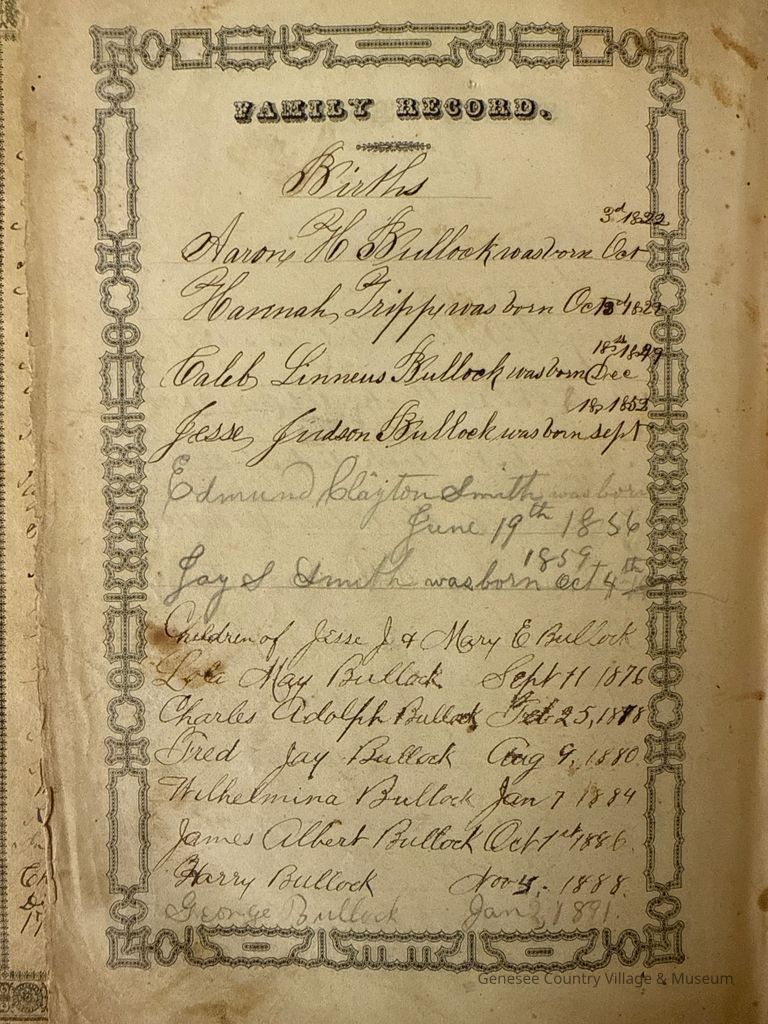 FAMILY RECORD.
Births
3d 1822
Aaron H Bullock was born Oct
Hannah Tripp was born Oct
18th 1849
Caleb Linneus Bullock was born Dec
18 1852
Jesse Judson Bullock was born sept
Edmund Clayton Smith was born
June 19th 1856
1859
Jay S Smith was born Oct 4th
Children of Jesse J & Mary E Bullock
May Bullock Sept 11 1876
Charles Adolph Bullock Feb 25, 1878
Fred Jay Bullock Aug 9, 1880
Wilhelmina Bullock Jan 7 1884
James Albert Bullock Oct 1st 1886
Harry Bullock Nov 1888.
George Bullock Jan 2, 1891.
Genesee Country Village & Museum